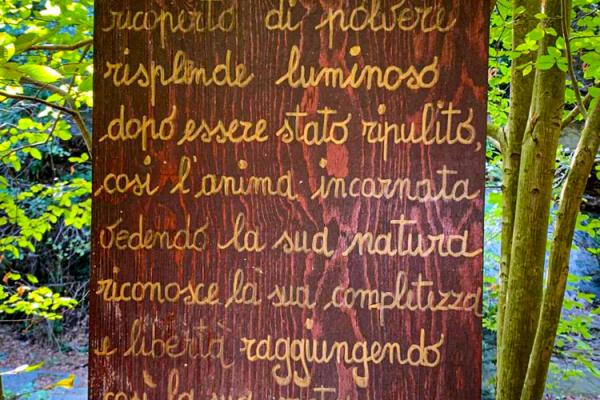 ricoperto di polvere
risplende luminoso
dopo essere stato ripulito,
così l'anima incarnata
vedendo la sua natura
riconosce la sua completezza
e libertà raggiungendo
così la sua